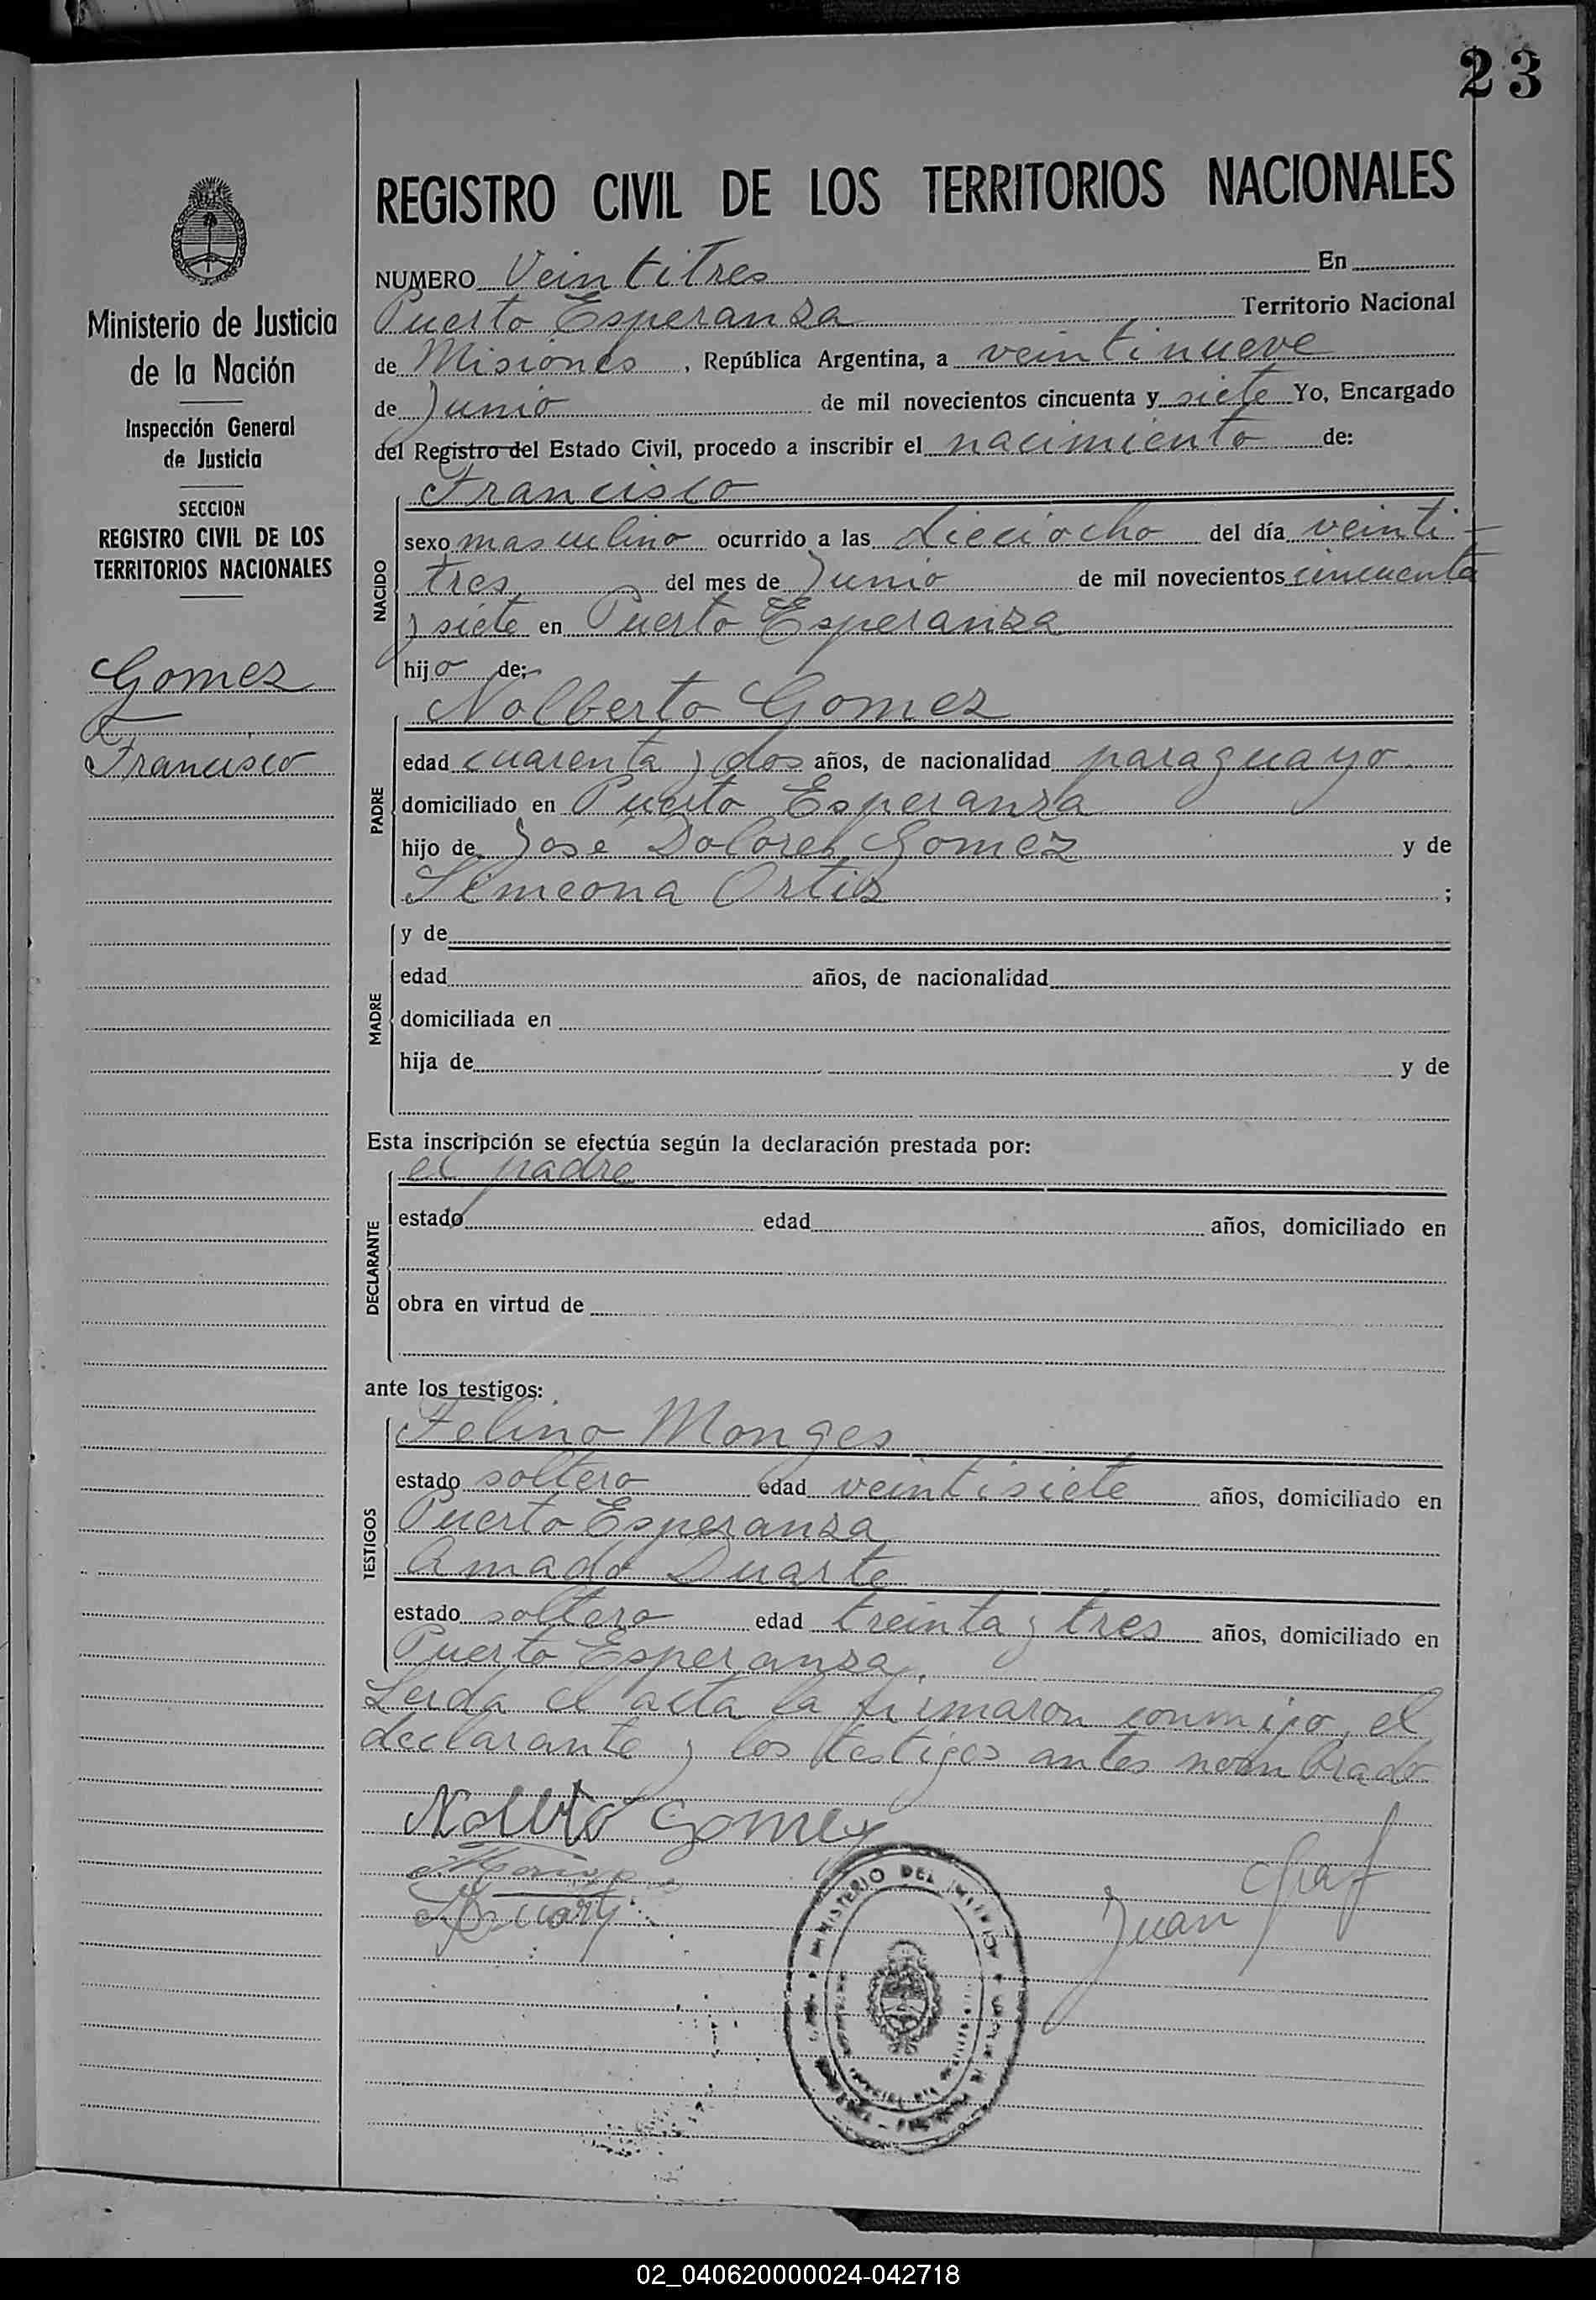 23
REGISTRO CIVIL DE LOS TERRITORIOS NACIONALES
Ministerio de Justicia
de la Nación
Inspección General
de Justicia
SECCION
REGISTRO CIVIL DE LOS
TERRITORIOS NACIONALES
Gomez
Francisco
NUMERO Veintitres En
Puerto Esperanza Territorio Nacional
de Misiones, República Argentina, a veintinueve
de Junio de mil novecientos cincuenta y siete Yo, Encargado
del Registro del Estado Civil, procedo a inscribir el nacimiento de:
NACIDO
Francisco
sexo masculino ocurrido a las dieciocho del día veinti-
tres del mes de Junio de mil novecientos cincuenta
y siete en Puerto Esperanza
hijo de:
PADRE
Nolberto Gomez
edad cuarenta y dos años, de nacionalidad paraguayo.
domiciliado en Puerto Esperanza
hijo de José Dolores Gomez y de
Simeona Ortiz ;
MADRE
y de
edad años, de nacionalidad
domiciliada en
hija de y de
Esta inscripción se efectúa según la declaración prestada por:
DECLARANTE
el padre
estado edad años, domiciliado en
obra en virtud de
ante los testigos:
TESTIGOS
Felino Monges
estado soltero edad veintisiete años, domiciliado en
Puerto Esperanza
Amado Duarte
estado soltero edad treinta y tres años, domiciliado en
Puerto Esperanza.
Leida el acta la firmaron conmigo, el
declarante y los testigos antes nombrado
Nolberto Gomez
Juan Graf
MINISTERIO DEL
02_040620000024-042718